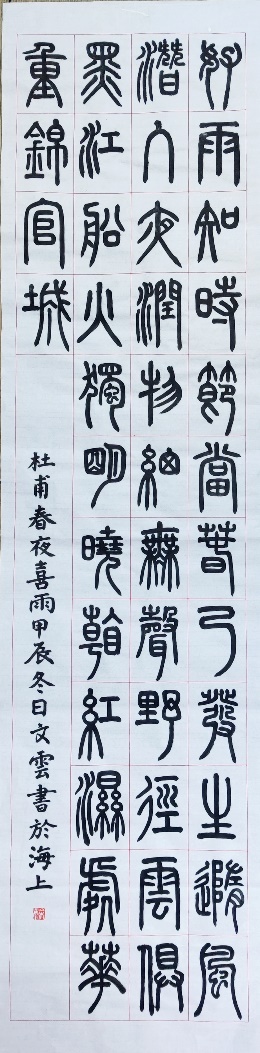 好雨知時節當春乃發生隨風
潛入夜潤物細無聲野徑雲俱
黑江船火獨明曉看紅濕處華
重錦官城
杜甫春夜喜雨甲辰冬日文雲書於海上